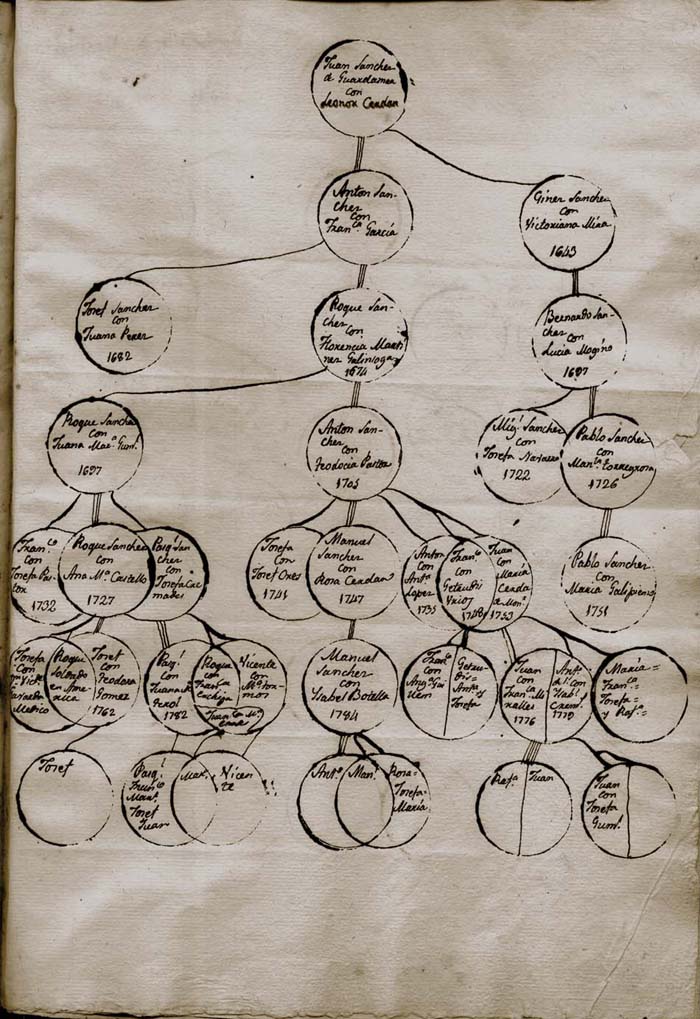 Juan Sanchez
de Guardamar
con
Leonor Cerdan
Anton San-
chez
con
Fran.ca Garcia
Giner Sanchez
con
Victoriana Mira
1643
Josef Sanchez
con
Juana Perez
1682
Roque San-
chez
con
Florencia Marti
nez Galiniogaz
1674
Bernardo San-
chez
con
Lucia Mogino
1697
Roque Sanchez
con
Juana Mar.a Gum.l
1697
Anton San-
chez
con
Teodocia Pastor
1705
Mig.l Sanchez
con
Josefa Navarro
1722
Pablo Sanchez
con
Man.la torregrosa
1726
Fran.co
con
Josefa Pas-
tor
1732
Roque Sanchez
con
Ana M.a Castello
1727
Pasq.l San
chez
con
Josefa Cre
mades
Josefa
con
Josef Ores
1741
Manuel
Sanchez
con
Rosa Cerdan
1747
Anton
con
Ant.a
Lopez
1735
Fran.co
con
Getrudis
1748
Juan
con
Maria
Cerda
de Mon.r
1753
Pablo Sanchez
con
Maria Galipienso
1751
Josefa
con
Vic.te
Navarro
Mexico
Roque
Soldado
en Ame
rica
Josef
con
Teodora
Gomez
1762
Pasq.l
con
Juana
1782
Roque
con
Fran.ca
Vicente
con
M.a
Juan con M.a
Manuel
Sanchez
con
Isabel Botella
1784
Fran.co
con
Ang.a Gui
llem
Getru-
dis=
Ant.a y
Josefa
Juan
con
Fran.ca Mi
ralles
1776
Ant.
con
Isab.l
1779
Maria=
Fran.ca=
Josefa=
y Raf.a=
Josef
Pasq.l
Fran.co
Man.l
Josef
Juan
Vicen-
te
Ant.o
Man.l
Rosa=
Josefa=
Maria
Raf.a
Juan
Juan
con
Josefa
Gum.l